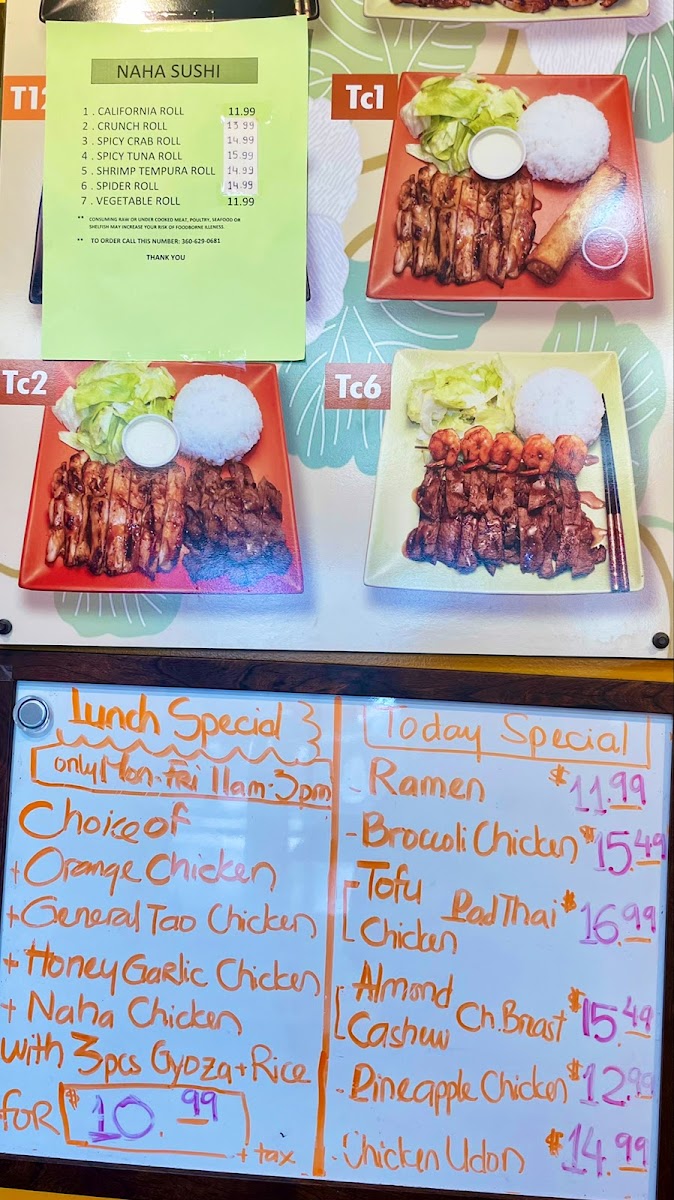 NAHA SUSHI
1 . CALIFORNIA ROLL 11.99
2 . CRUNCH ROLL 13.99
3 . SPICY CRAB ROLL 14.99
4 . SPICY TUNA ROLL 15.99
5 . SHRIMP TEMPURA ROLL 14.99
6 . SPIDER ROLL 14.99
7 . VEGETABLE ROLL 11.99
** CONSUMING RAW OR UNDER COOKED MEAT, POULTRY, SEAFOOD OR
SHELFISH MAY INCREASE YOUR RISK OF FOODBORNE ILLNESS.
** TO ORDER CALL THIS NUMBER: 360-629-0681
THANK YOU
Tc1
Tc2
Tc6
Lunch Special
only Mon-Fri 11am-3pm
Choice of
+ Orange Chicken
+ General Tao Chicken
+ Honey Garlic Chicken
+ Naha Chicken
with 3pcs Gyoza + Rice
for $10.99
+ tax
Today Special
- Ramen $11.99
- Broccoli Chicken $15.49
- Tofu
Chicken Pad Thai $16.99
Almond
Cashew Ch. Breast $15.49
- Pineapple Chicken $12.99
- Chicken Udon $14.99